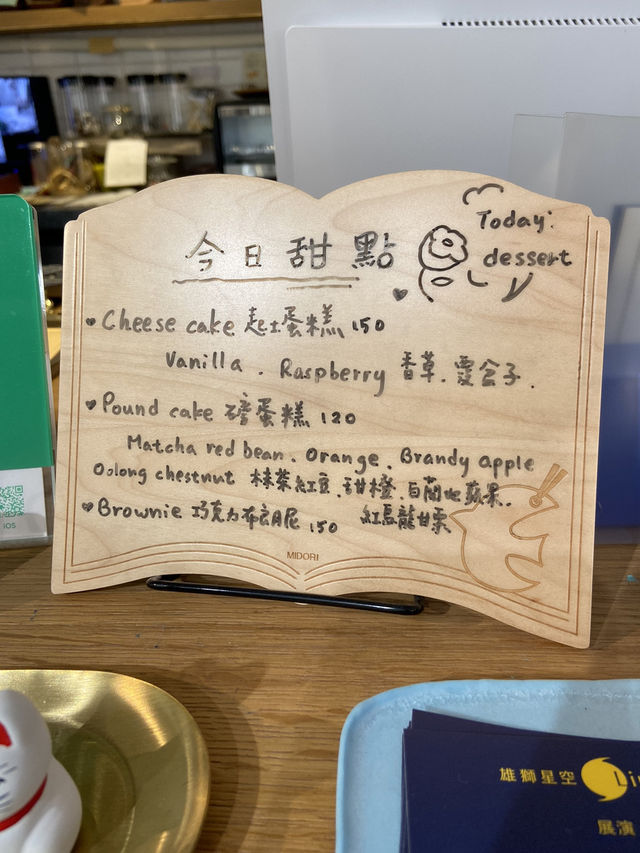 Today:
今日甜點 dessert
Cheese cake 起士蛋糕 150
Vanilla . Raspberry 香草.覆盆子.
Pound cake 磅蛋糕 120
Matcha red bean . Orange . Brandy apple
Oolong chestnut 抹茶紅豆.甜橙.白蘭地蘋果.
Brownie 巧克力布朗尼 150 紅烏龍甘栗
MIDORI
iOS
雄獅星空
展演